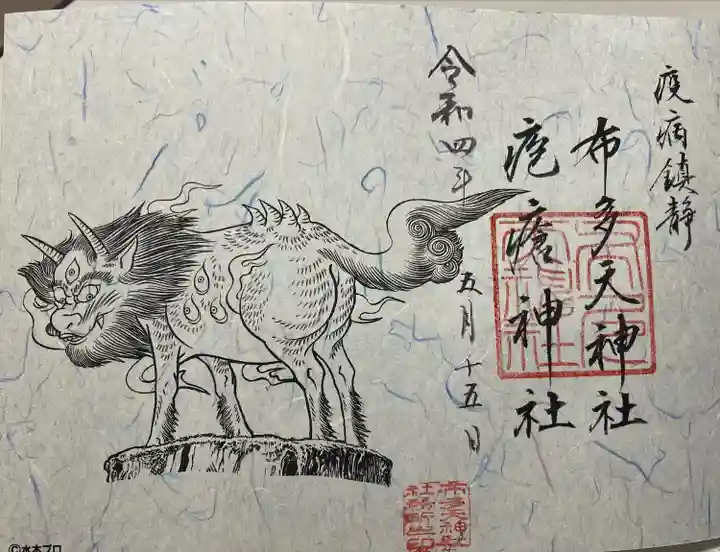 疫病鎮静
布多天神社
疱瘡神社
令和四年五月十五日
©水木プロ